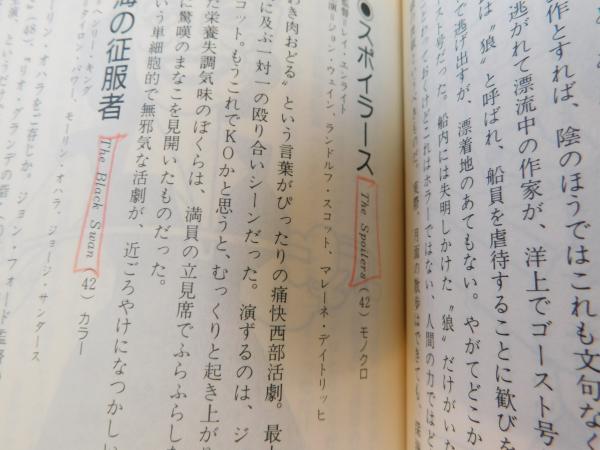 作とすれば、陰のほうではこれも文句なく
逃がれて漂流中の作家が、洋上でゴースト号
は〝狼〟と呼ばれ、船員を虐待することに歓びを
て逃げ出すが、漂着地のあてもない。やがてどこか
スト号だった。船内には失明しかけた〝狼〟だけがいた
とかっておくけどこれはホラーではない。人間の力ではど
●スポイラース The Spoilers (42) モノクロ
監督=レイ・エンライト
演=ジョン・ウェイン、ランドルフ・スコット、マレーネ・デイトリッヒ
わき肉おどる〟という言葉がぴったりの痛快西部活劇。最
に及ぶ一対一の殴り合いシーンだった。演ずるのは、ジ
コット。もうこれでKOかと思うと、むっくりと起き上が
た栄養失調気味のぼくらは、満員の立見席でふらふらした
に驚嘆のまなこを見開いたものだった。
いう単細胞的で無邪気な活劇が、近ごろやけになつかしい
海の征服者 The Black Swan (42) カラー
ンリー・キング
イロン・パワー、モーリン・オハラ、ジョージ・サンダース
リン・オハラをご存じか。ジョン・フォード監督
(48)、『リオ・グランデの砦』